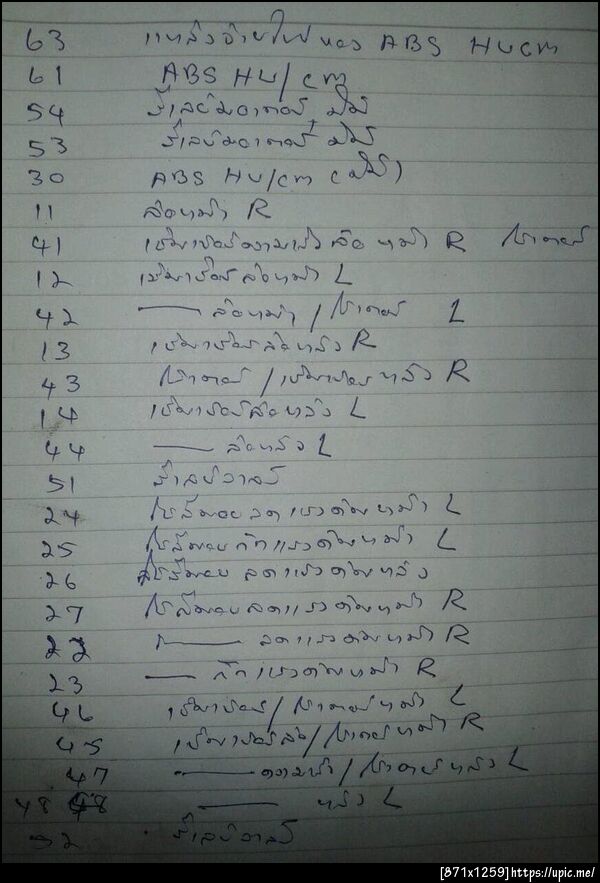 63 แหล่งจ่ายไฟของ ABS HU/CM
61 ABS HU/CM
54 รีเลย์มอเตอร์ ปั๊ม
53 รีเลย์มอเตอร์ ปั๊ม
30 ABS HU/CM (ปั๊ม)
11 ล้อหน้า R
41 เซ็นเซอร์ความเร็วล้อหน้า R โรเตอร์
12 เซ็นเซอร์ล้อหน้า L
42 —— ล้อหน้า / โรเตอร์ L
13 เซ็นเซอร์ล้อหลัง R
43 โรเตอร์ / เซ็นเซอร์ หลัง R
14 เซ็นเซอร์ล้อหลัง L
44 —— ล้อหลัง L
51 รีเลย์วาล์ว
24 โซลินอย ลดแรงดันหน้า L
25 โซลินอย กักแรงดันหน้า L
26 โซลินอย ลดแรงดันหลัง
27 โซลินอย ลดแรงดันหน้า R
22 —— ลดแรงดันหน้า R
23 —— กักแรงดันหน้า R
46 เซ็นเซอร์ / โรเตอร์หน้า L
45 เซ็นเซอร์ล้อ / โรเตอร์หน้า R
47 —— ความเร็ว / โรเตอร์หลัง L
48 —— หลัง L
52 รีเลย์วาล์ว
[871x1259]https://upic.me/